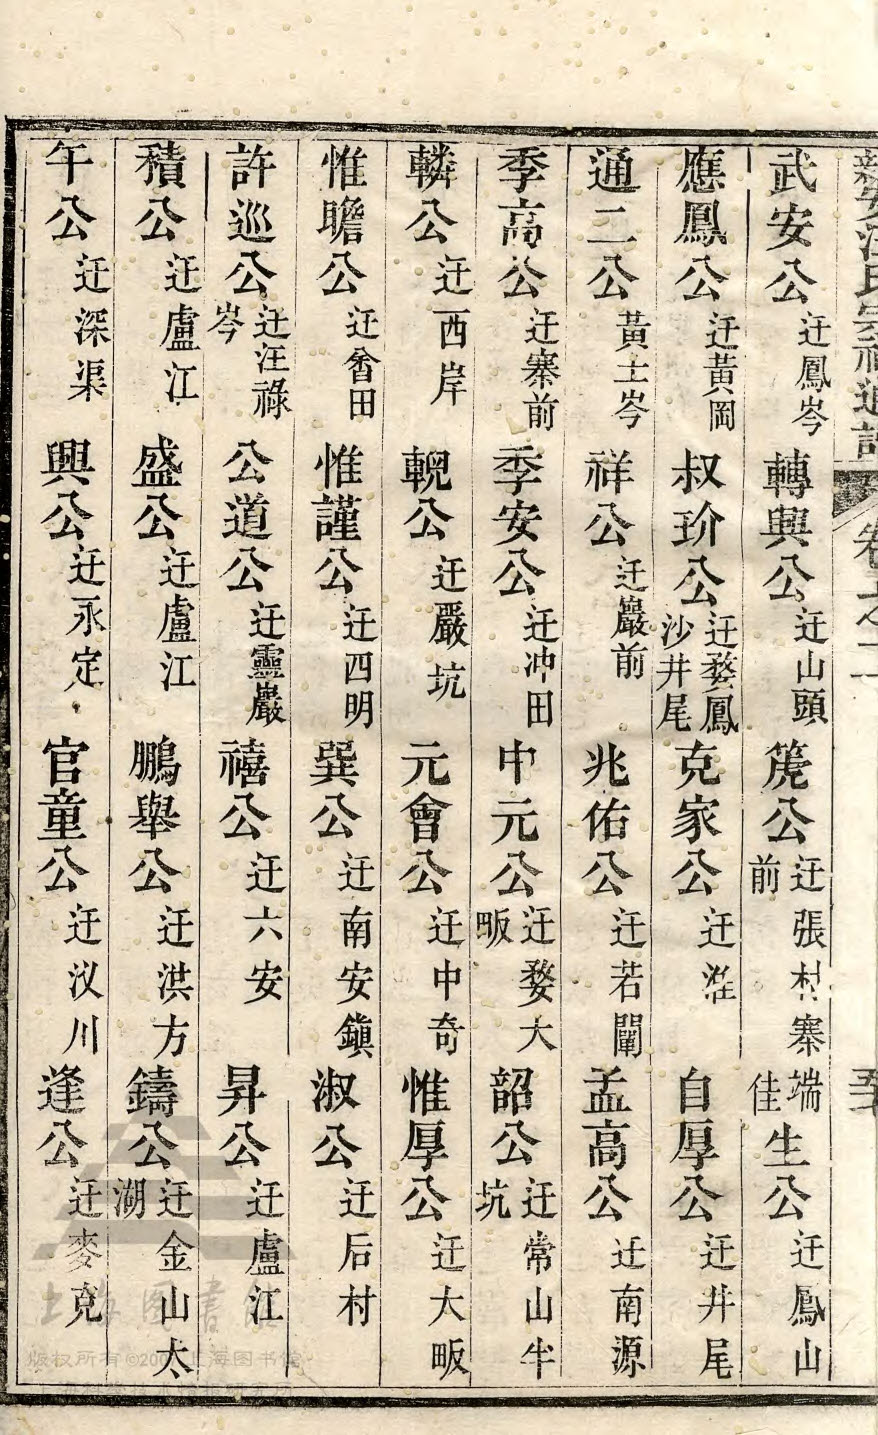 新安汪氏宗祠通譜 卷之二
武安公 迁鳳岑 轉興公 迁山頭 篪公 迁張村寨前 端佳生公 迁鳳山
應鳳公 迁黃岡 叔玠公 迁婺鳳沙井尾 克家公 迁淮 自厚公 迁井尾
通二公 黃土岑 祥公 迁巖前 兆佑公 迁若闌 孟高公 迁南源
季高公 迁寨前 季安公 迁冲田 中元公 迁婺大畈 韶公 迁常山半坑
轔公 迁西岸 輗公 迁嚴坑 元會公 迁中奇 惟厚公 迁大畈
惟瞻公 迁畨田 惟謹公 迁四明 巽公 迁南安鎭 淑公 迁后村
許巡公 迁汪祿岑 公道公 迁靈巖 禧公 迁六安 昇公 迁廬江
積公 迁廬江 盛公 迁廬江 鵬舉公 迁洪方 鑄公 迁金山太湖
午公 迁深渠 興公 迁永定 官童公 迁汊川 逢公 迁麥克
上海图书馆